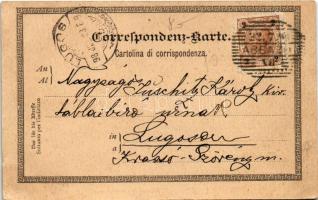 LUGOS
Correspondenz-Karte.
Cartolina di corrispondenza.
An
Al
Nagyságos Juschitz Károly kir.
táblai biró úrnak
in Lugoson
a Krassó-Szörény m.
Nur für die Adresse
Soltanto per l'indirizzo